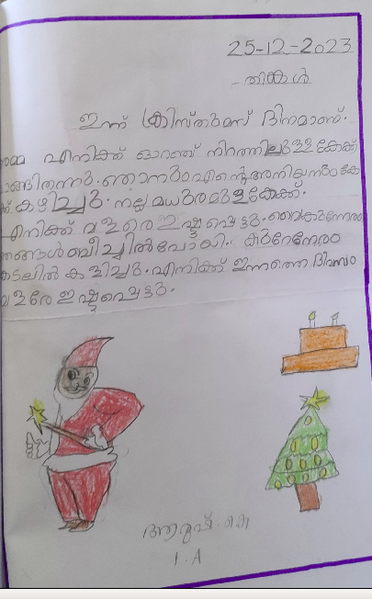 25-12-2023
തിങ്കൾ
ഇന്ന് ക്രിസ്തുമസ് ദിനമാണ്.
അമ്മ എനിക്ക് ഓറഞ്ച് നിറത്തിലുള്ള കേക്ക്
വാങ്ങിതന്നു. ഞാനും എന്റെ അനിയനും കേ
ക്ക് കഴിച്ചു. നല്ല മധുരമുള്ള കേക്ക്.
എനിക്ക് വളരെ ഇഷ്ടപ്പെട്ടു. വൈകുന്നേരം
ഞങ്ങൾ ബീച്ചിൽ പോയി. കുറേനേരം
കടലിൽ കളിച്ചു. എനിക്ക് ഇന്നത്തെ ദിവസം
വളരേ ഇഷ്ടപ്പെട്ടു.
ആരുഷ്. കെ
1.A